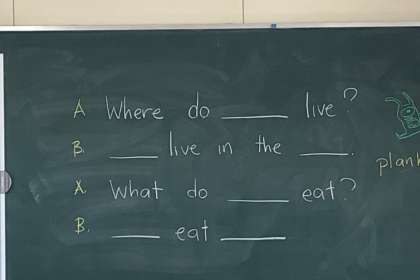 A Where do ____ live?
B. ____ live in the ____.
A. What do ____ eat?
B. ____ eat ____